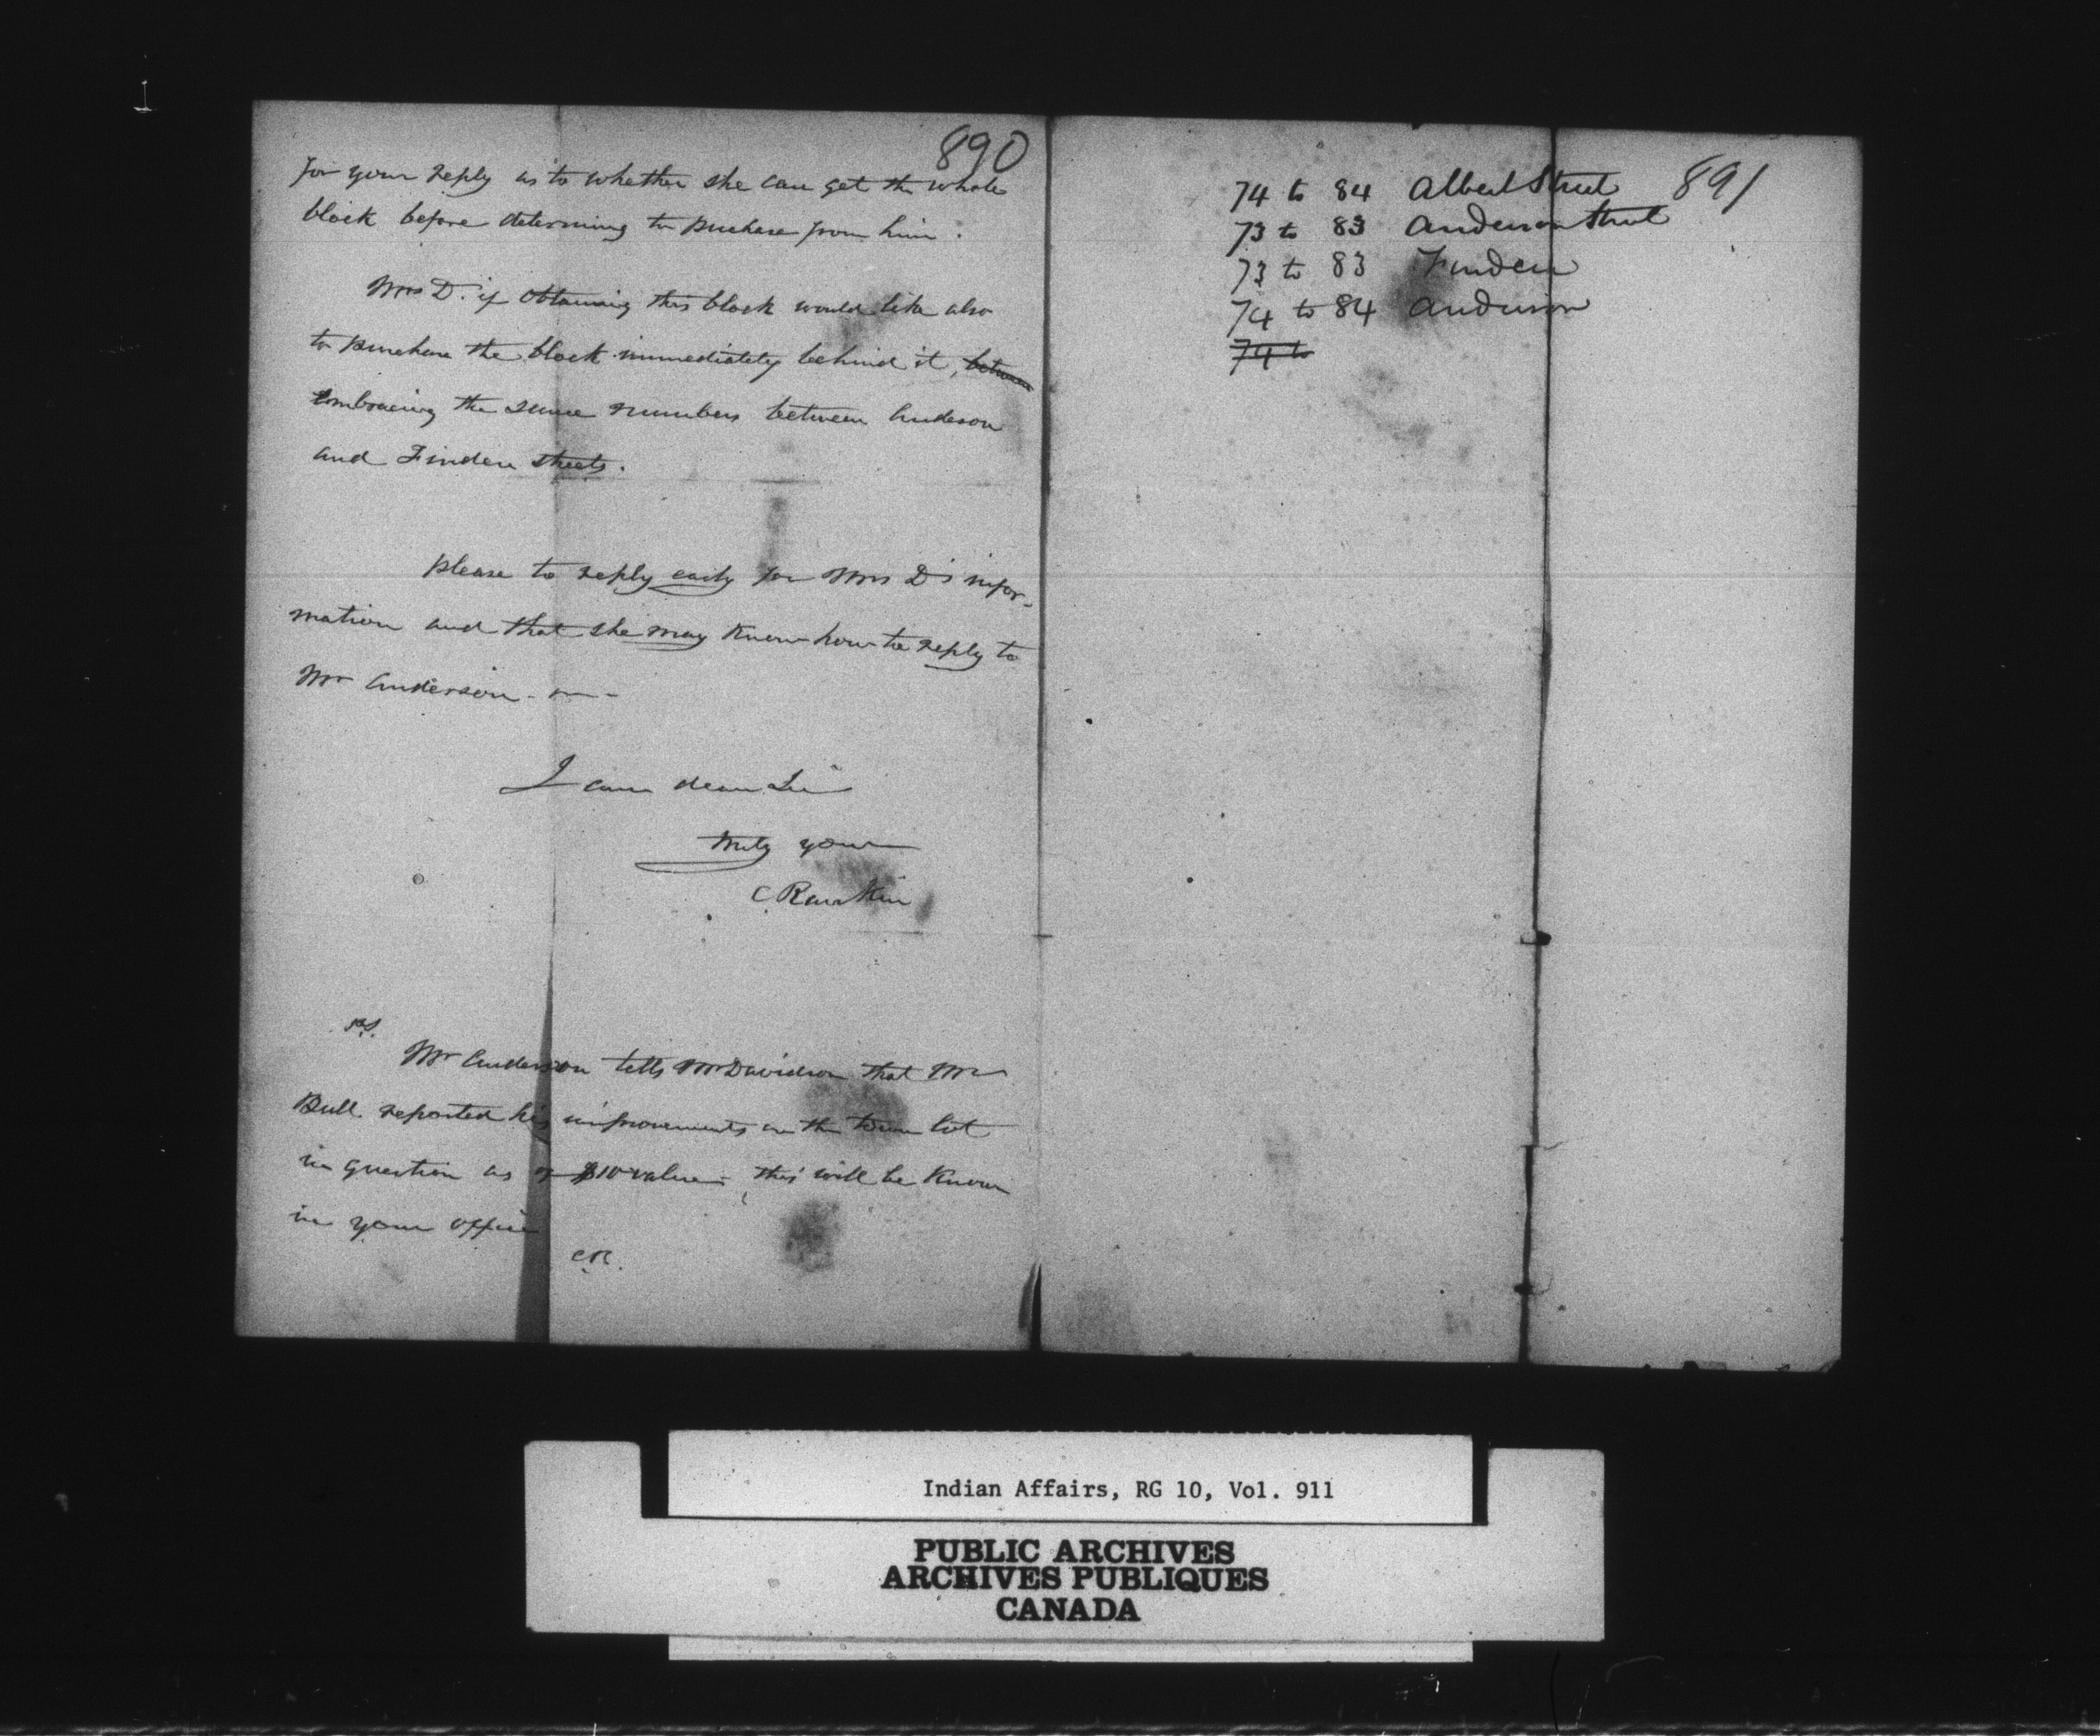 890
for your reply as to whether she can get the whole
block before determining to purchase from him.
Mrs D. if obtaining this block would like also
to purchase the block immediately behind it, between
embracing the same numbers between Anderson
and Finden streets.
please to reply early for Mrs D's infor-
mation and that she may know how to reply to
Mr Anderson
I am dear Sir
truly yours
C Rankin
P.S.
Mr Anderson tells Mr Davidson that Mr
Bull reported his improvements on the town lot
in question as of $10 value - this will be known
in your office
C.R.
891
74 to 84 Albert Street
73 to 83 Anderson Street
73 to 83 Finden
74 to 84 Anderson
74 to
Indian Affairs, RG 10, Vol. 911
PUBLIC ARCHIVES
ARCHIVES PUBLIQUES
CANADA